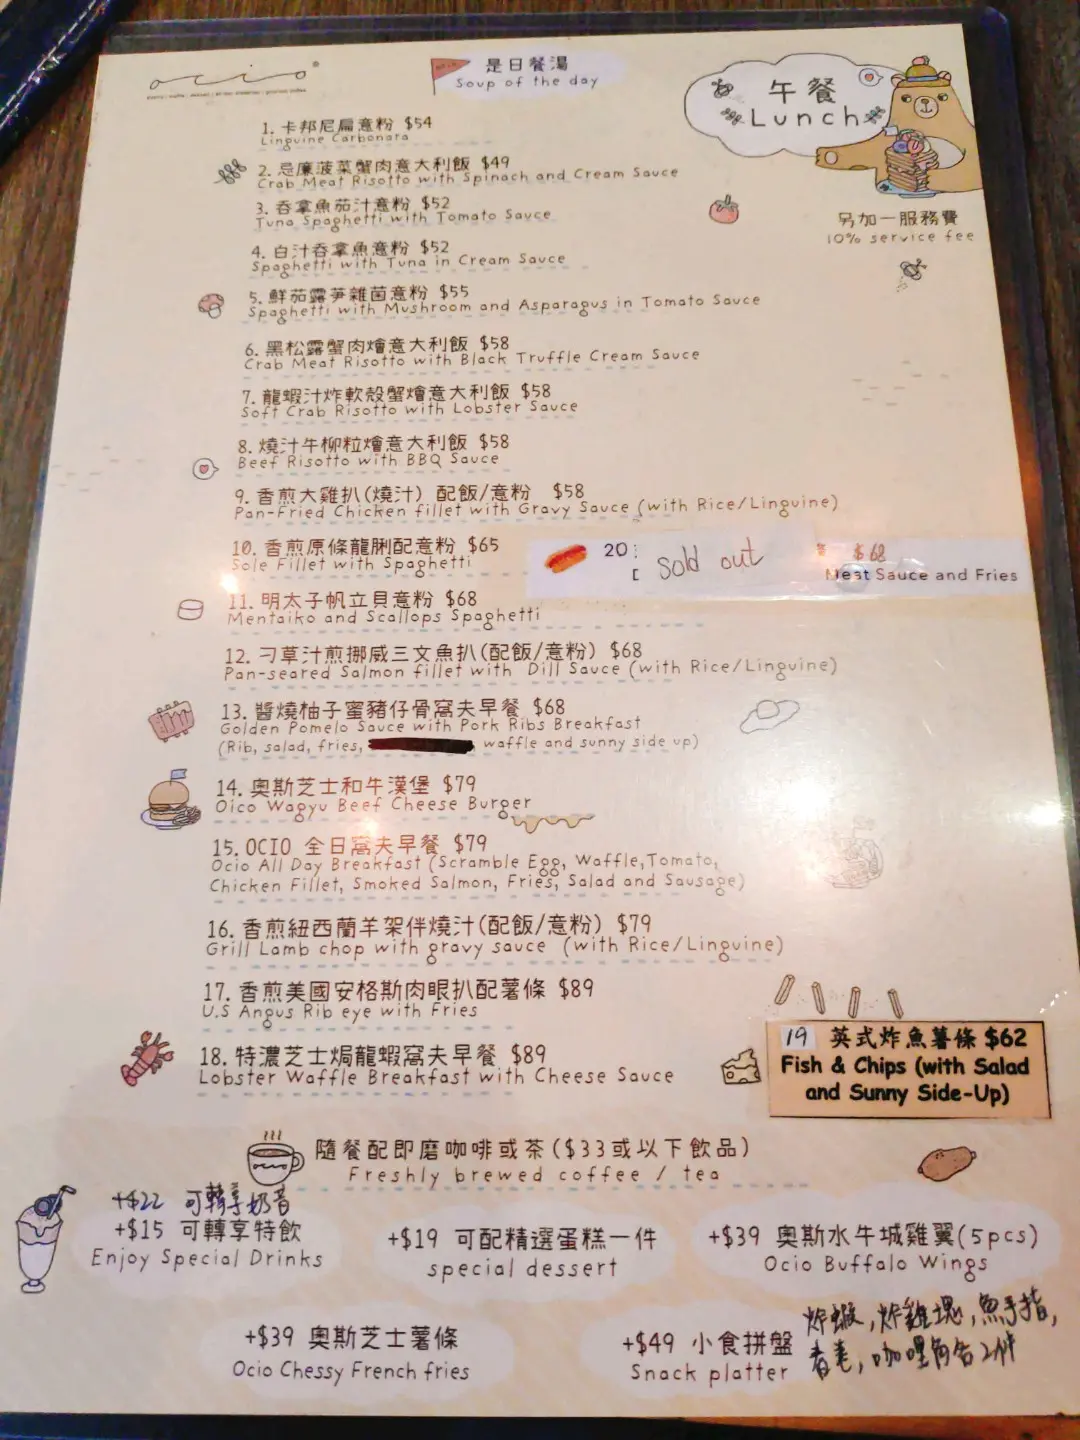 ocio
是日餐湯
Soup of the day
午餐
Lunch
另加一服務費
10% service fee
1. 卡邦尼扁意粉 $54
Linguine Carbonara
2. 忌廉菠菜蟹肉意大利飯 $49
Crab Meat Risotto with Spinach and Cream Sauce
3. 吞拿魚茄汁意粉 $52
Tuna Spaghetti with Tomato Sauce
4. 白汁吞拿魚意粉 $52
Spaghetti with Tuna in Cream Sauce
5. 鮮茄露笋雜菌意粉 $55
Spaghetti with Mushroom and Asparagus in Tomato Sauce
6. 黑松露蟹肉燴意大利飯 $58
Crab Meat Risotto with Black Truffle Cream Sauce
7. 龍蝦汁炸軟殼蟹燴意大利飯 $58
Soft Crab Risotto with Lobster Sauce
8. 燒汁牛柳粒燴意大利飯 $58
Beef Risotto with BBQ Sauce
9. 香煎大雞扒(燒汁) 配飯/意粉 $58
Pan-Fried Chicken fillet with Gravy Sauce (with Rice/Linguine)
10. 香煎原條龍脷配意粉 $65
Sole Fillet with Spaghetti
20
sold out
$68
Meat Sauce and Fries
11. 明太子帆立貝意粉 $68
Mentaiko and Scallops Spaghetti
12. 刁草汁煎挪威三文魚扒(配飯/意粉) $68
Pan-seared Salmon fillet with Dill Sauce (with Rice/Linguine)
13. 醬燒柚子蜜豬仔骨窩夫早餐 $68
Golden Pomelo Sauce with Pork Ribs Breakfast
(Rib, salad, fries, waffle and sunny side up)
14. 奧斯芝士和牛漢堡 $79
Oico Wagyu Beef Cheese Burger
15. OCIO 全日窩夫早餐 $79
Ocio All Day Breakfast (Scramble Egg, Waffle,Tomato,
Chicken Fillet, Smoked Salmon, Fries, Salad and Sausage)
16. 香煎紐西蘭羊架伴燒汁(配飯/意粉) $79
Grill Lamb chop with gravy sauce (with Rice/Linguine)
17. 香煎美國安格斯肉眼扒配薯條 $89
U.S Angus Rib eye with Fries
18. 特濃芝士焗龍蝦窩夫早餐 $89
Lobster Waffle Breakfast with Cheese Sauce
19 英式炸魚薯條 $62
Fish & Chips (with Salad
and Sunny Side-Up)
隨餐配即磨咖啡或茶($33或以下飲品)
Freshly brewed coffee / tea
+$22 可轉享奶昔
+$15 可轉享特飲
Enjoy Special Drinks
+$19 可配精選蛋糕一件
special dessert
+$39 奧斯水牛城雞翼(5pcs)
Ocio Buffalo Wings
+$39 奧斯芝士薯條
Ocio Chessy French fries
+$49 小食拼盤
Snack platter
炸蝦,炸雞塊,魚手指,
春卷,咖哩角各2件